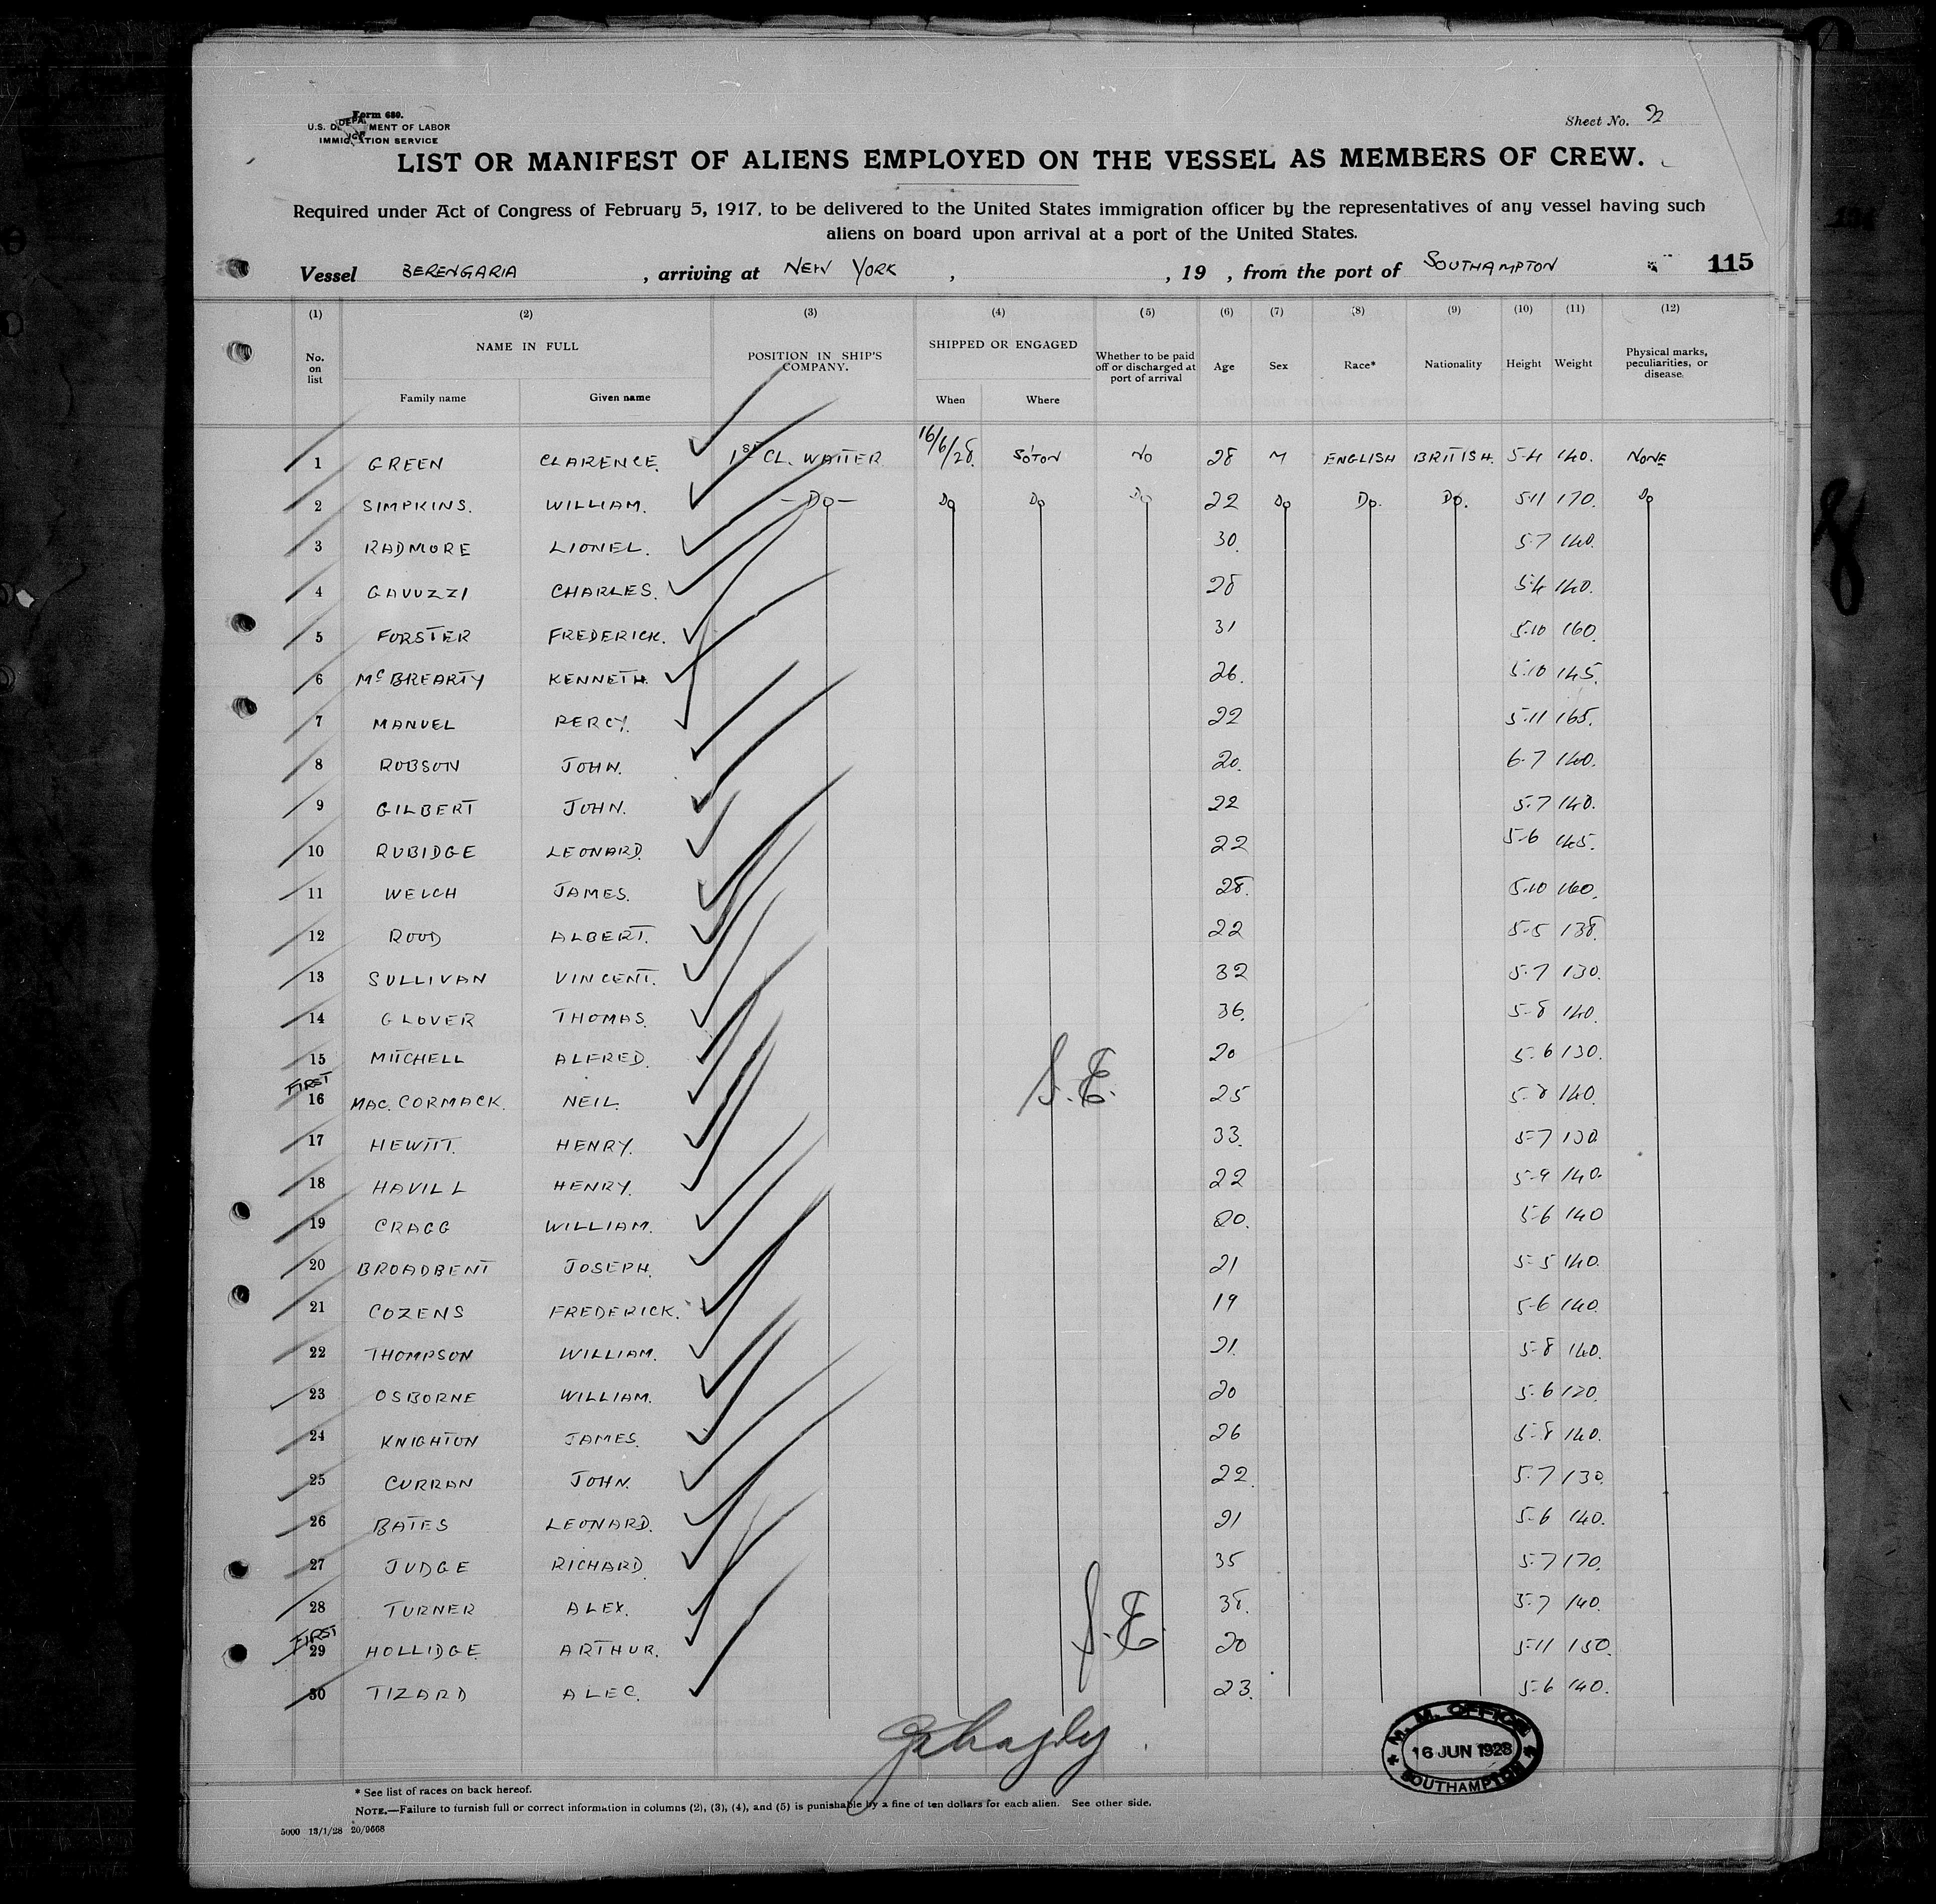 Form 680.
U.S. DEPARTMENT OF LABOR
IMMIGRATION SERVICE
Sheet No.
LIST OR MANIFEST OF ALIENS EMPLOYED ON THE VESSEL AS MEMBERS OF CREW.
Required under Act of Congress of February 5, 1917, to be delivered to the United States immigration officer by the representatives of any vessel having such
aliens on board upon arrival at a port of the United States.
Vessel BERENGARIA , arriving at NEW YORK , , 19 , from the port of SOUTHAMPTON 115
(1) (2) (3) (4) (5) (6) (7) (8) (9) (10) (11) (12)
No. on list NAME IN FULL POSITION IN SHIP'S COMPANY. SHIPPED OR ENGAGED Whether to be paid off or discharged at port of arrival Age Sex Race* Nationality Height Weight Physical marks, peculiarities, or disease
Family name Given name When Where
1 GREEN CLARENCE. 1ST CL. WAITER 16/6/28. SO'TON NO 28 M ENGLISH BRITISH. 5-4 140. NONE
2 SIMPKINS. WILLIAM. - Do - Do Do Do 22 Do Do. Do. 5-11 170. Do
3 RADMORE LIONEL. 30. 5-7 140.
4 GAVUZZI CHARLES. 28 5-4 140.
5 FORSTER FREDERICK. 31 5-10 160.
6 McBREARTY KENNETH. 26. 5-10 145.
7 MANUEL PERCY. 22 5-11 165.
8 ROBSON JOHN. 20. 6-7 140.
9 GILBERT JOHN. 22 5-7 140.
10 RUBIDGE LEONARD. 22 5-6 145.
11 WELCH JAMES. 28. 5-10 160.
12 ROOD ALBERT. 22 5-5 138.
13 SULLIVAN VINCENT. 32 5-7 130.
14 GLOVER THOMAS. 36. 5-8 140.
15 MITCHELL ALFRED. 20 5-6 130.
FIRST
16 MAC. CORMACK. NEIL. S.E. 25 5-8 140.
17 HEWITT. HENRY. 33. 5-7 130
18 HAVILL HENRY. 22 5-9 140.
19 CRAGG WILLIAM. 20. 5-6 140
20 BROADBENT JOSEPH. 21 5-5 140.
21 COZENS FREDERICK. 19 5-6 140.
22 THOMPSON WILLIAM. 21. 5-8 140.
23 OSBORNE WILLIAM. 20 5-6 120.
24 KNIGHTON JAMES. 26 5-8 140.
25 CURRAN JOHN. 22. 5-7 130.
26 BATES LEONARD. 21 5-6 140.
27 JUDGE RICHARD. 35 5-7 170.
28 TURNER ALEX. 38. 5-7 140.
FIRST
29 HOLLIDGE ARTHUR. S.E. 20 5-11 150.
30 TIZARD ALEC. 23. 5-6 140.
M. M. OFFICE
16 JUN 1928
SOUTHAMPTON
* See list of races on back hereof.
NOTE.—Failure to furnish full or correct information in columns (2), (3), (4), and (5) is punishable by a fine of ten dollars for each alien. See other side.
5000 13/1/28 20/9668